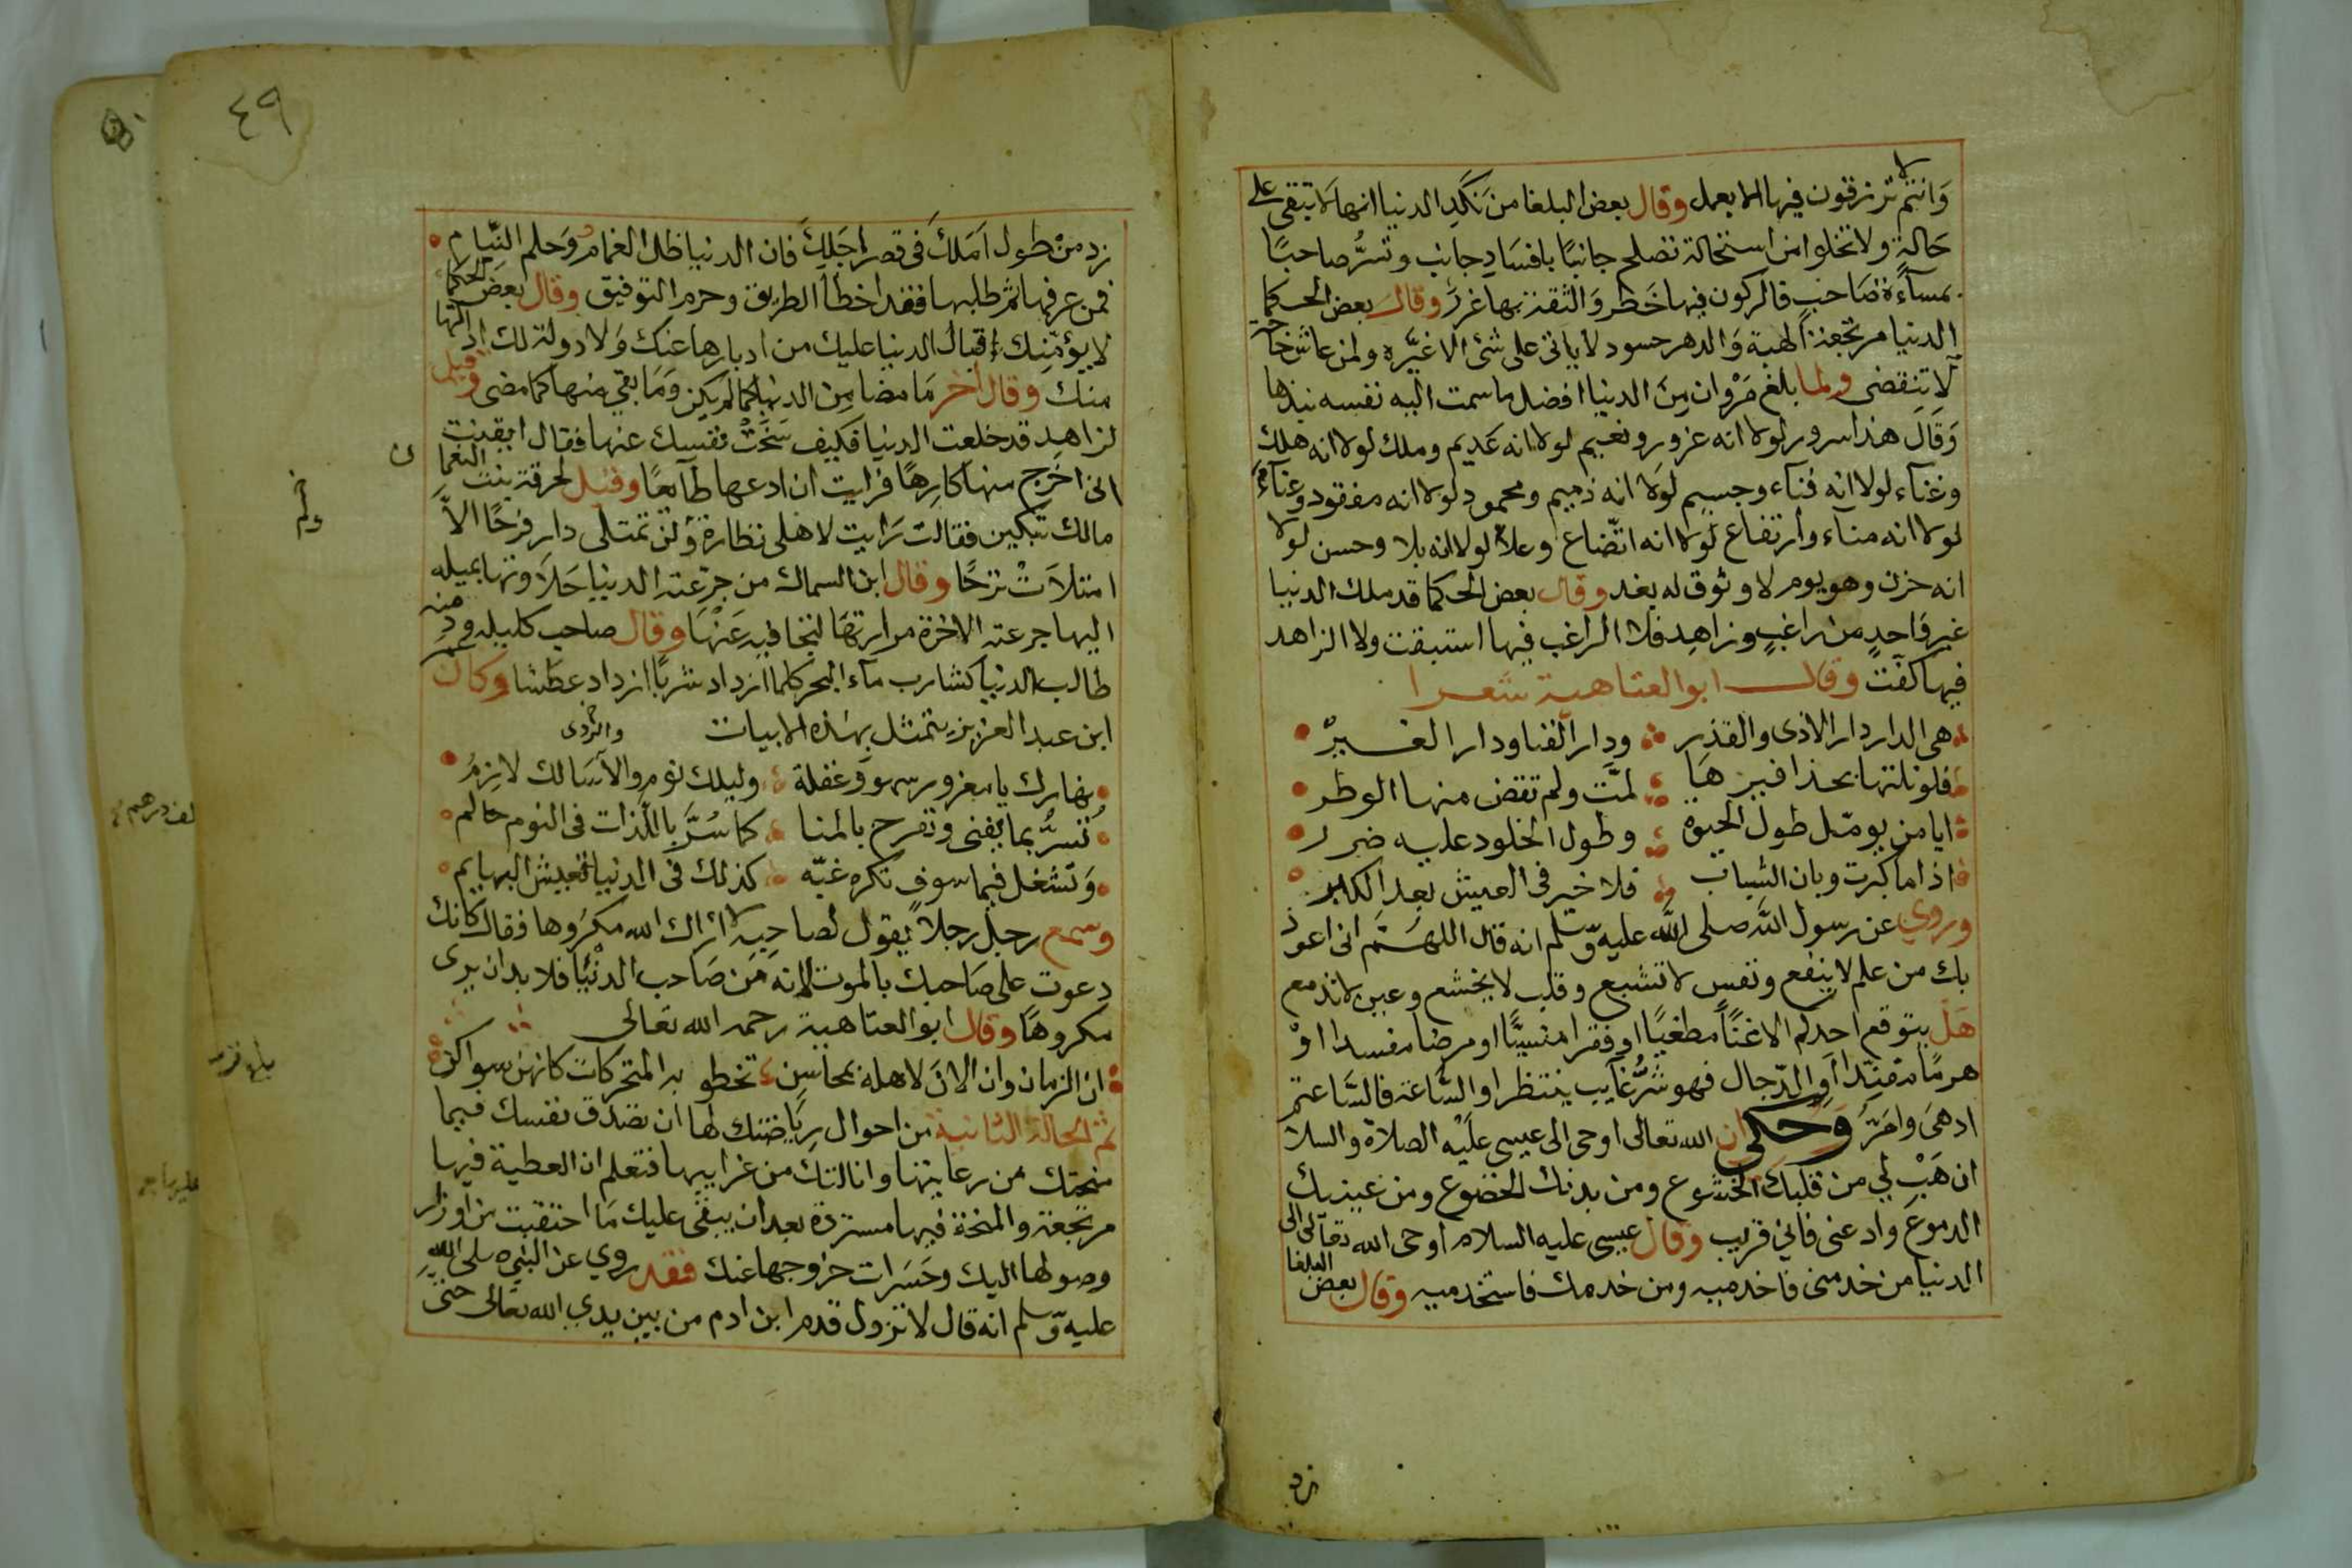 وَانتم لا ترزقون فيها الا بعمل وقال بعض البلغا من نَكَدِ الدنيا انها لا تبقى على
حَالةٍ ولا تخلوا من استحالة تصلح جانبًا بافسَادِ جانب وتسرُّ صاحبًا
بمسآءة صَاحبٍ فالركون فيها خَطر وَالثقة بها غررٌ وقال بعض الحكما
الدنيا مرتجعة الهبة وَالدهر حسود لا ياتى على شئ الا غيَّره ولمن عاش حاجة
لا تنقضى ولما بلغ مَزْوان مِنَ الدنيا افضل ما سمت اليه نفسه نبذها
وَقَالَ هذا سرور لولا انه غرور ونعيم لولا انه عَديم وملك لولا انه هلك
وغنآء لولا انه فنآء وجسيم لوَلا انه ذميم ومحمود لولا انه مفقود وغنآء
لولا انه منآء وارتفاع لولا انه اتّضاع وعلآ لولا انه بلا وحسن لولا
انه حزن وهو يوم لا وثوق له بغد وقال بعض الحكما قد ملك الدنيا
غير وَاحدٍ من راغبٍ وزاهِدٍ فلا الراغب فيها استبقت ولا الزاهد
فيها كفّت وقال ابو العتاهية شعرا
هى الدار دار الاذى والقذر ودار الفنا ودار الغِيَرْ
فلو نلتها بحذافيرهَا لمتَّ ولم تقض منها الوطر
ايا من يومّل طول الحيوة وطول الخلود عليه ضرر
اذا ما كبرت وبان الشباب فلا خير فى العيش بعد الكبر
وروي عن رسول الله صلى الله عليه وسلم انه قال اللهُمَّ انى اعوذ
بك من علم لا ينفع ونفس لا تشبع وقلب لا يخشع وعين لا تدمع
هَل يتوقع احدكم الا غنًا مطغيًا او فقرا منسيًّا او مرضا مفسدا اوْ
هرمًا مفنّدا اوِ الدّجال فهو شرُّ غآيب ينتظر او السَّاعة فالسَّاعة
ادهىَ وامَرُّ وَحكي ان الله تعالى اوحى الى عيسى علَيْه الصلاة والسلا
ان هَبْ لي من قلبك الخشوع ومن بدنك الخضوع ومن عينيك
الدموعَ وادعنى فاني قريب وقال عيسى عليه السلام اوحى الله تعالى الى
الدنيا من خدمنى فاخدميه ومن خدمك فاستخدميه وقال بعض البلغا
زد
٤٩
زد من طول اَمَلكَ فى قصر اجَلِكَ فان الدنيا ظل الغمام وَحلم النِّيام
فمن عرفها ثم طلبها فقد اخطأ الطريق وحرم التوفيق وقال بعض الحكما
لا يؤمّنِك اقبال الدنيا عليك من ادبارها عنك وَلا دولة لك ادالتها
منك وقال اخر مَا مضا مِن الدنيا كما لم يكن وَمَا بقي منها كما مضى وقيل
لزاهدٍ قد خلعت الدنيا فكيف سَخَتْ نفسك عنها فقال ايقنت
انى اخرج منها كارِهًا فرايت ان ادعها طآيعًا وقيل لحرقة بنت النعما
مالك تبكين فقالت رَايت لاهلى نظارة ولن تمتلى دار فرحًا الاَّ
امتلاَتْ ترَحًا وقال ابن السماك من جرّعته الدنيا حَلاَوتها بميله
اليها جرعته الاخرة مرارتهَا لتجافيه عَنْهَا وقال صاحب كليله ودمنه
طالب الدنيا كشارب مآء البحر كلما ازداد شربًا ازداد عطَشا وكان عمر
ابن عبد العزيز يتمثل بهذه الابيات
نهارك يا مغرور سهو وَغفلة وليلك نوم والاَسَا لك لازِمُ
والرَّدى
تُسرُّ بما يفنى وتفرح بالمنا كما سُرَّ باللَّذات فى النوم حالم
وَتشغل فيما سوف تكره غبّه كذلك فى الدنيا تعيش البهايم
وسمع رجل رجلاً يقول لصاحِبِه لا اَراك الله مكرُوها فقال كانك
دعوت على صَاحبك بالموت لانه مَن صَاحب الدنْيَا فلا بد ان يرى
مكروهًا وقال ابو العتاهية رحمه الله تعالى
ان الزمان وان الانَ لاهله بمحاسن تخطو به المتحركات كانهن سواكن
ثم الحالة الثانية من احوال رِيَاضتك لها ان تصدق نفسك فيما
منحتك من رعايتها وانالتك من غرايبها فتعلم ان العطية فيها
مرتجعة والمنحة فيها مستردَّة بعد ان يبقى عليك مَا احتقبت من اوزار
وصولها اليك وخَسَرات خروجها عنك فقد روي عن النبى صلى اللهِ
عليه وسلم انه قال لا تزول قدم ابن ادم من بين يدي الله تعَالى حتى